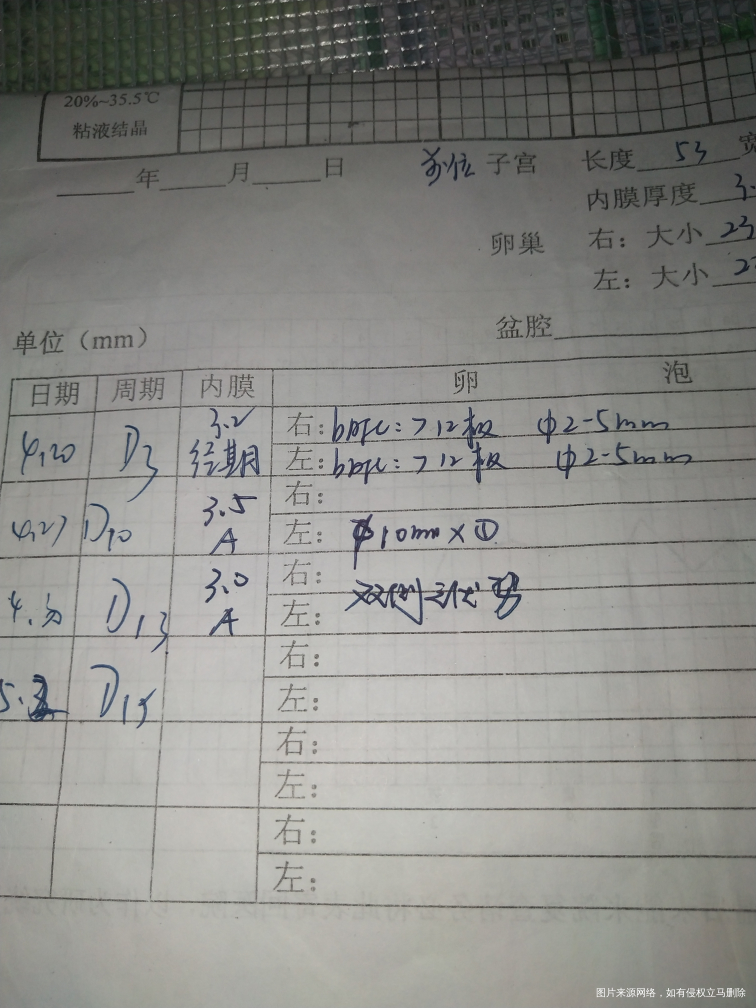 20%~35.5℃
粘液结晶
年 月 日 前位 子宫 长度 53 宽
内膜厚度 3.
卵巢 右：大小 23
左：大小 2
单位（mm） 盆腔
日期 周期 内膜 卵 泡
4.20 D3 3.2 经期 右： >12枚 φ2-5mm
左： >12枚 φ2-5mm
4.27 D10 3.5 A 右：
左：φ10mm×①
4.30 D13 3.0 A 右：
左： 双侧无优势
5.2 D15 右：
左：
右：
左：
右：
左：
图片来源网络，如有侵权立马删除